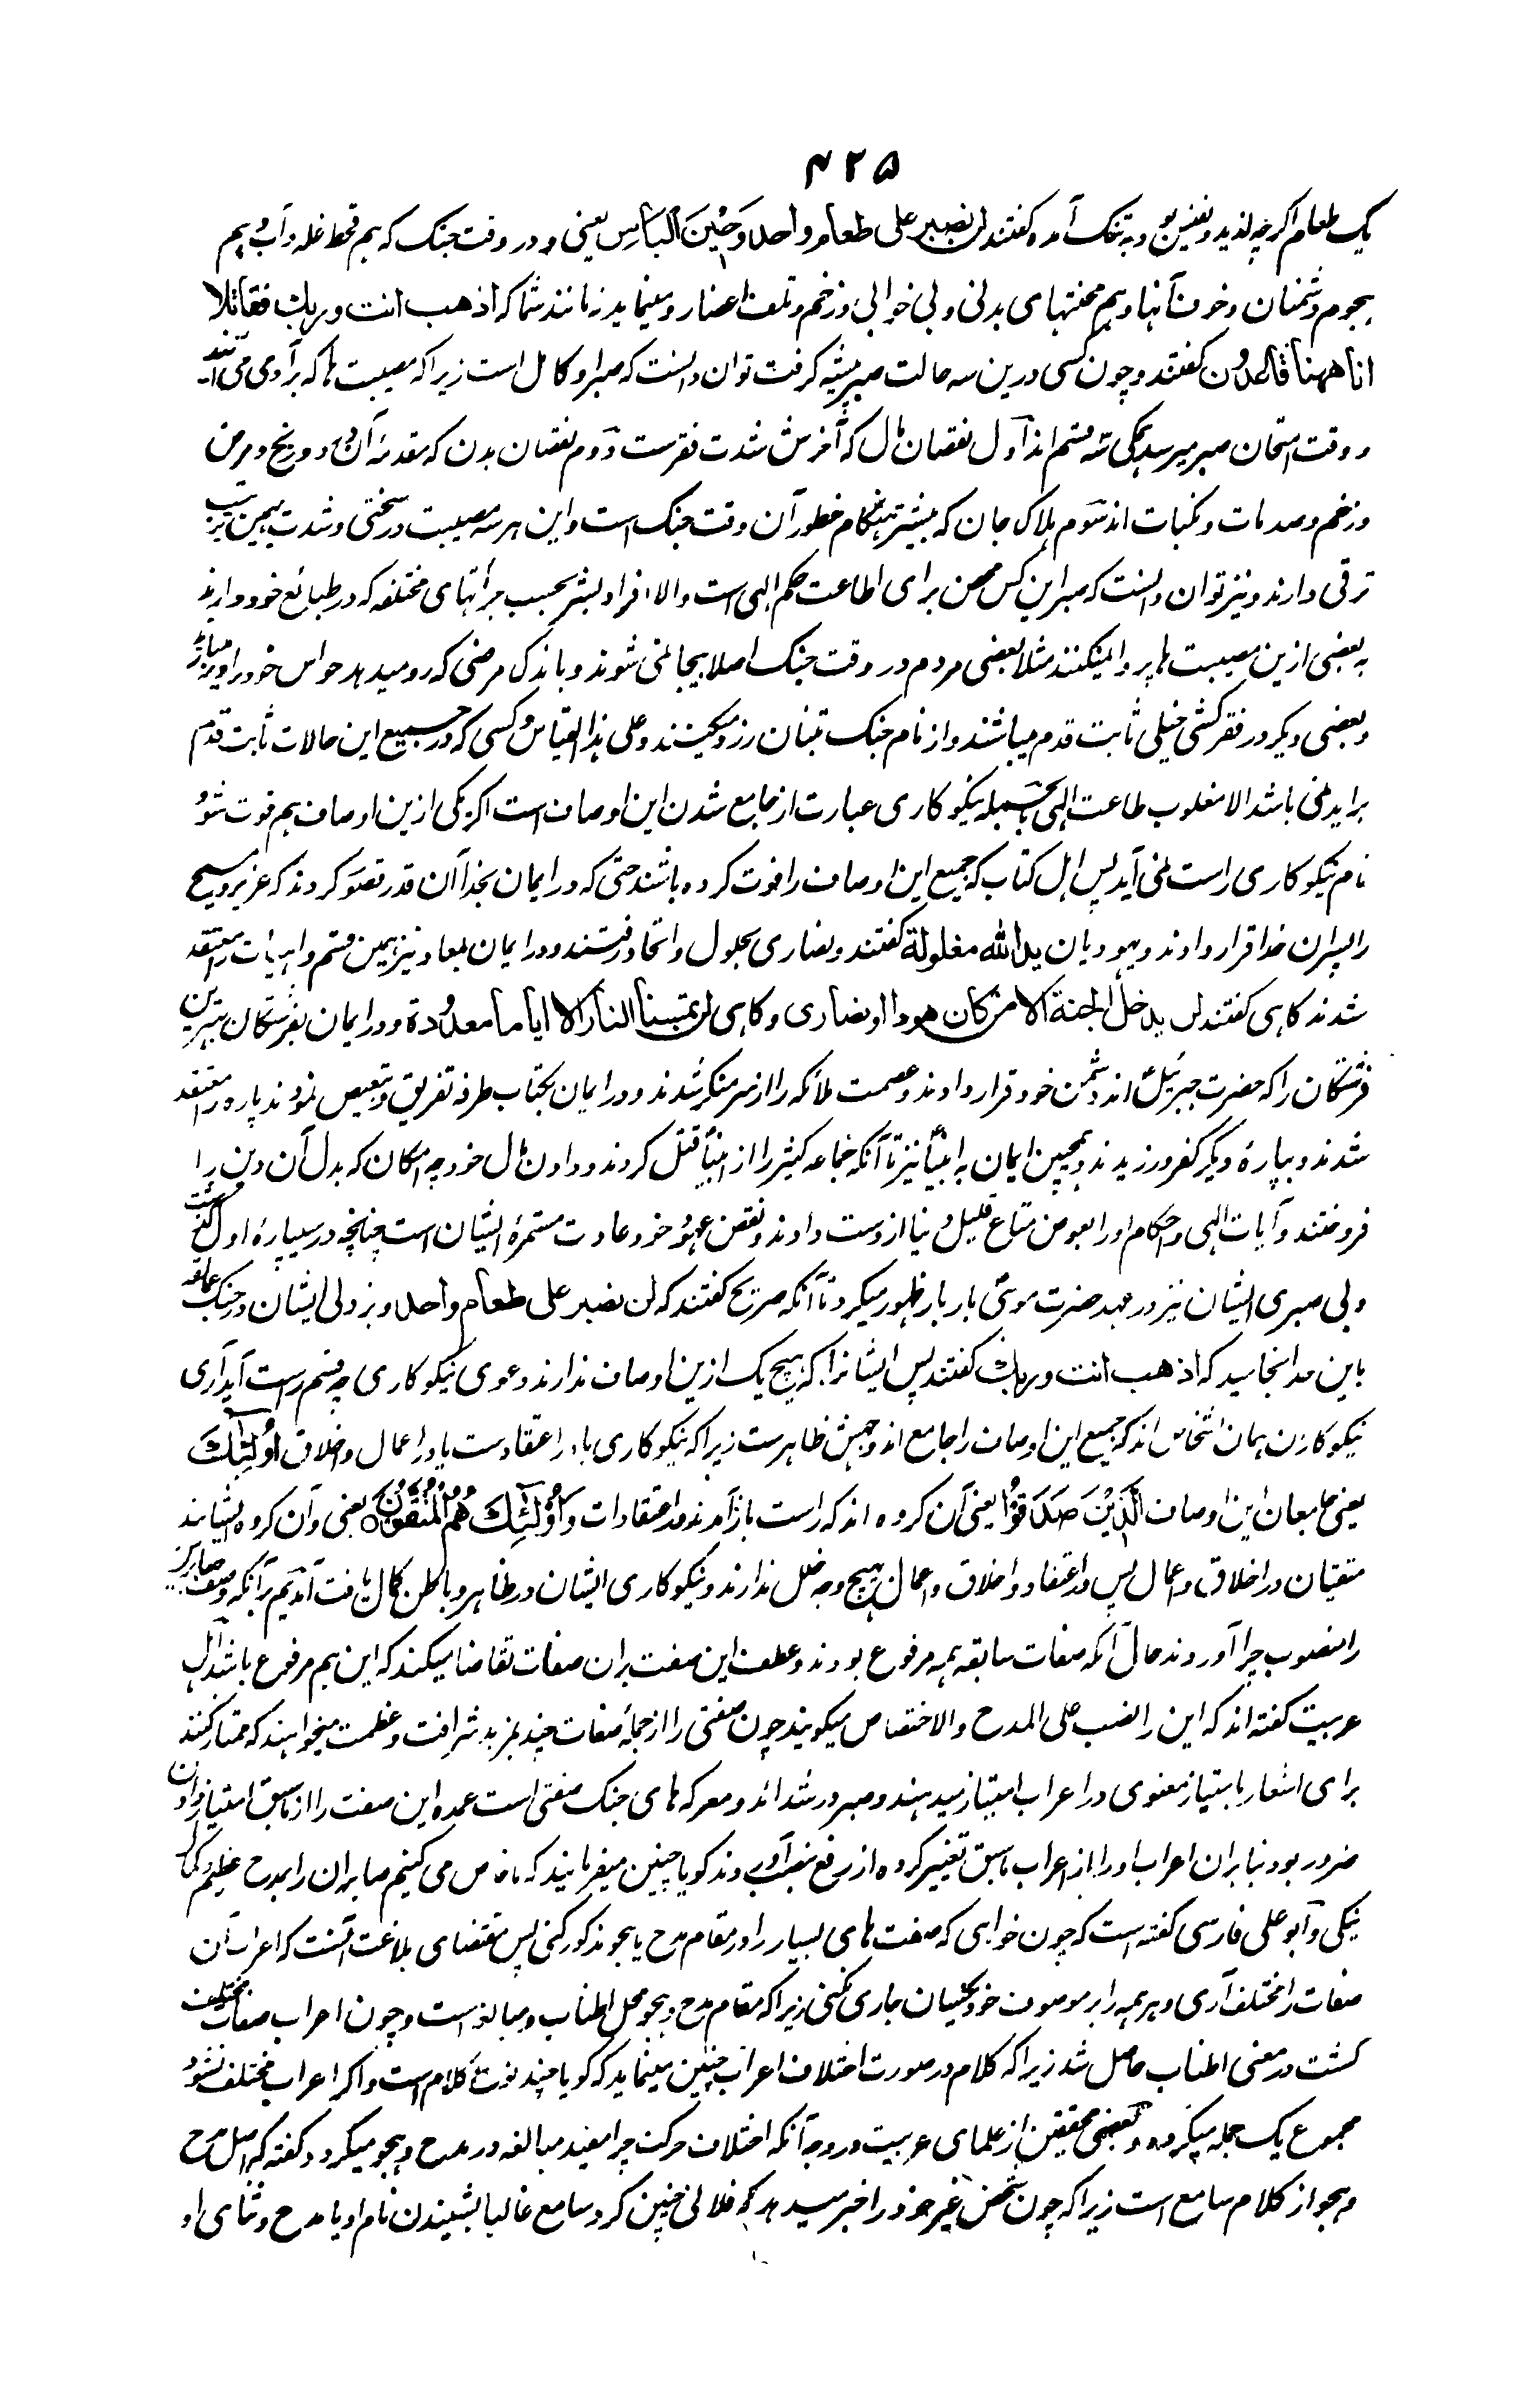 ۴۲۵
یک طعام اگرچه لذیذ و نفیس بود به تنگ آمده گفتند لن نصبر علی طعام واحد وَحِیْنَ الْبَأْسِ یعنی و در وقت جنک که هم قحط غله و آب و هم
هجوم دشمنان و خوف آنها و هم محنتهای بدنی و بی خوابی و زخم و تلف اعضا رو مینماید نه مانند شما که اذهب انت وربك فقاتلا
انا ههنا قاعدون گفتند و چون کسی درین سه حالت صبر پیشه گرفت توان دانست که صبر او کامل است زیرا که مصیبت ها که بر آدمی می آیند
و وقت امتحان صبر میرسد همگی سه قسم اند اول نقصان مال که آخرش شدت فقرست دوم نقصان بدن که مقدمهٔ آن درد و رنج و مرض
و زخم و صدمات و نکبات اند سوم هلاک جان که بیشتر هنگام خطور آن وقت جنک است و این هر سه مصیبت در سختی و شدت بهمین ترتیب
ترقی دارند و نیز توان دانست که صبر این کس محض برای اطاعت حکم الهی است و الا افراد بشر بحسب جرأتهای مختلفه که در طبائع خود دارند
به بعضی ازین مصیبت ها پروا نمیکنند مثلا بعضی مردم در وقت جنک اصلا بیجا نمی شوند و باندک مرضی که رو میدهد حواس خود را می بازند
و بعضی دیگر در فقر کشی خیلی ثابت قدم میباشند و از نام جنک تنبان زرد میکنند و علی هذا القیاس و کسی که در جمیع این حالات ثابت قدم
براید نمی باشد الا مغلوب طاعت الهی بالجمله نیکوکاری عبارت از جامع شدن این اوصاف است اگر یکی ازین اوصاف هم فوت شود
نام نیکوکاری راست نمی آید پس اهل کتاب که جمیع این اوصاف را فوت کرده باشند حتی که در ایمان بخدا آن قدر قصور کردند که عزیر و مسیح
را پسران خدا قرار دادند و یهودیان ید الله مغلولة گفتند و نصاری بحلول و اتحاد رفتند و در ایمان بمعاد نیز بهمین قسم واهیات را معتقد
شدند گاهی گفتند لن یدخل الجنة الا من کان هودا او نصاری و گاهی لن تمسنا النار الا ایاما معدودة و در ایمان بفرشتگان بهترین
فرشتگان را که حضرت جبرئیل اند دشمن خود قرار دادند و عصمت ملائکه را از سر منکر شدند و در ایمان بکتاب طرفه تفریق و تبعیض نمودند پاره را معتقد
شدند و بپارهٔ دیگر کفر ورزیدند و همچنین ایمان به انبیا نیز تا آنکه جماعه کثیر را از انبیا قتل کردند و دادن مال خود چه امکان که بدل آن دین را
فروختند و آیات الهی و احکام او را بعوض متاع قلیل دنیا از دست دادند و نقض عهود خود عادت مستمرهٔ ایشان است چنانچه در سیپارهٔ اول گذشت
و بی صبری ایشان نیز در عهد حضرت موسی بار بار ظهور میکرد تا آنکه صریح گفتند که لن نصبر علی طعام واحد و بزدلی ایشان در جنک عمالقه
باین حد انجامید که اذهب انت وربك گفتند پس ایشانرا که هیچ یک ازین اوصاف ندارند دعوی نیکوکاری چه قسم راست آید آری
نیکوکاران همان اشخاص اند که جمیع این اوصاف را جامع اند و جهش ظاهرست زیرا که نیکوکاری یا در اعتقادست یا در اعمال و اخلاق اُولٰٓئِكَ
یعنی جامعان این اوصاف الَّذِیْنَ صَدَقُوْا یعنی آن گروه اند که راست باز آمدند در اعتقادات وَ اُولٰٓئِكَ هُمُ الْمُتَّقُوْنَ یعنی و آن گروه ایشانند
متقیان در اخلاق و اعمال پس در اعتقاد و اخلاق و اعمال هیچ وجه خلل ندارند و نیکوکاری ایشان در ظاهر و باطن کمال یافت آمدیم بر آنکه وصف صابرین
را منصوب چرا آوردند حال آنکه صفات سابقه همه مرفوع بودند و عطف این صفت بران صفات تقاضا میکند که این هم مرفوع باشد اهل
عربیت گفته اند که این را نصب علی المدح والاختصاص میگویند چون صفتی را از جملهٔ صفات چند بمزید شرافت و عظمت میخواهند که ممتاز کنند
برای اشعار بامتیاز معنوی در اعراب امتیاز میدهند و صبر در شدائد و معرکه های جنک صفتی است عمده این صفت را از ماسبق امتیاز دادن
ضرور بود بنابران اعراب او را از اعراب ماسبق تغییر کرده از رفع بنصب آوردند گویا چنین میفرمایند که ما خاص می کنیم صابران را بمدح عظیم و کمال
نیکی و ابو علی فارسی گفته است که چون خواهی که صفت های بسیار را در مقام مدح یا هجو مذکور کنی پس مقتضای بلاغت آنست که اعراب آن
صفات را مختلف آری و بر همه را بر موصوف خود یکسان جاری نکنی زیرا که مقام مدح و هجو محل اطناب و مبالغه است و چون اعراب صفات مختلف
گشت در معنی اطناب حاصل شد زیرا که کلام در صورت اختلاف اعراب چنین مینماید که گویا چند نوع کلام است و اگر اعراب مختلف نشود
مجموع یک جمله میگردد و بعضی محققین از علمای عربیت در وجه آنکه اختلاف حرکت چرا مفید مبالغه در مدح و هجو میگردد گفته که اصل مدح
و هجو از کلام سامع است زیرا که چون شخص غیر خود را خبر میدهد که فلانی چنین کرد سامع غالبا بشنیدن نام او یا مدح و ثنای او